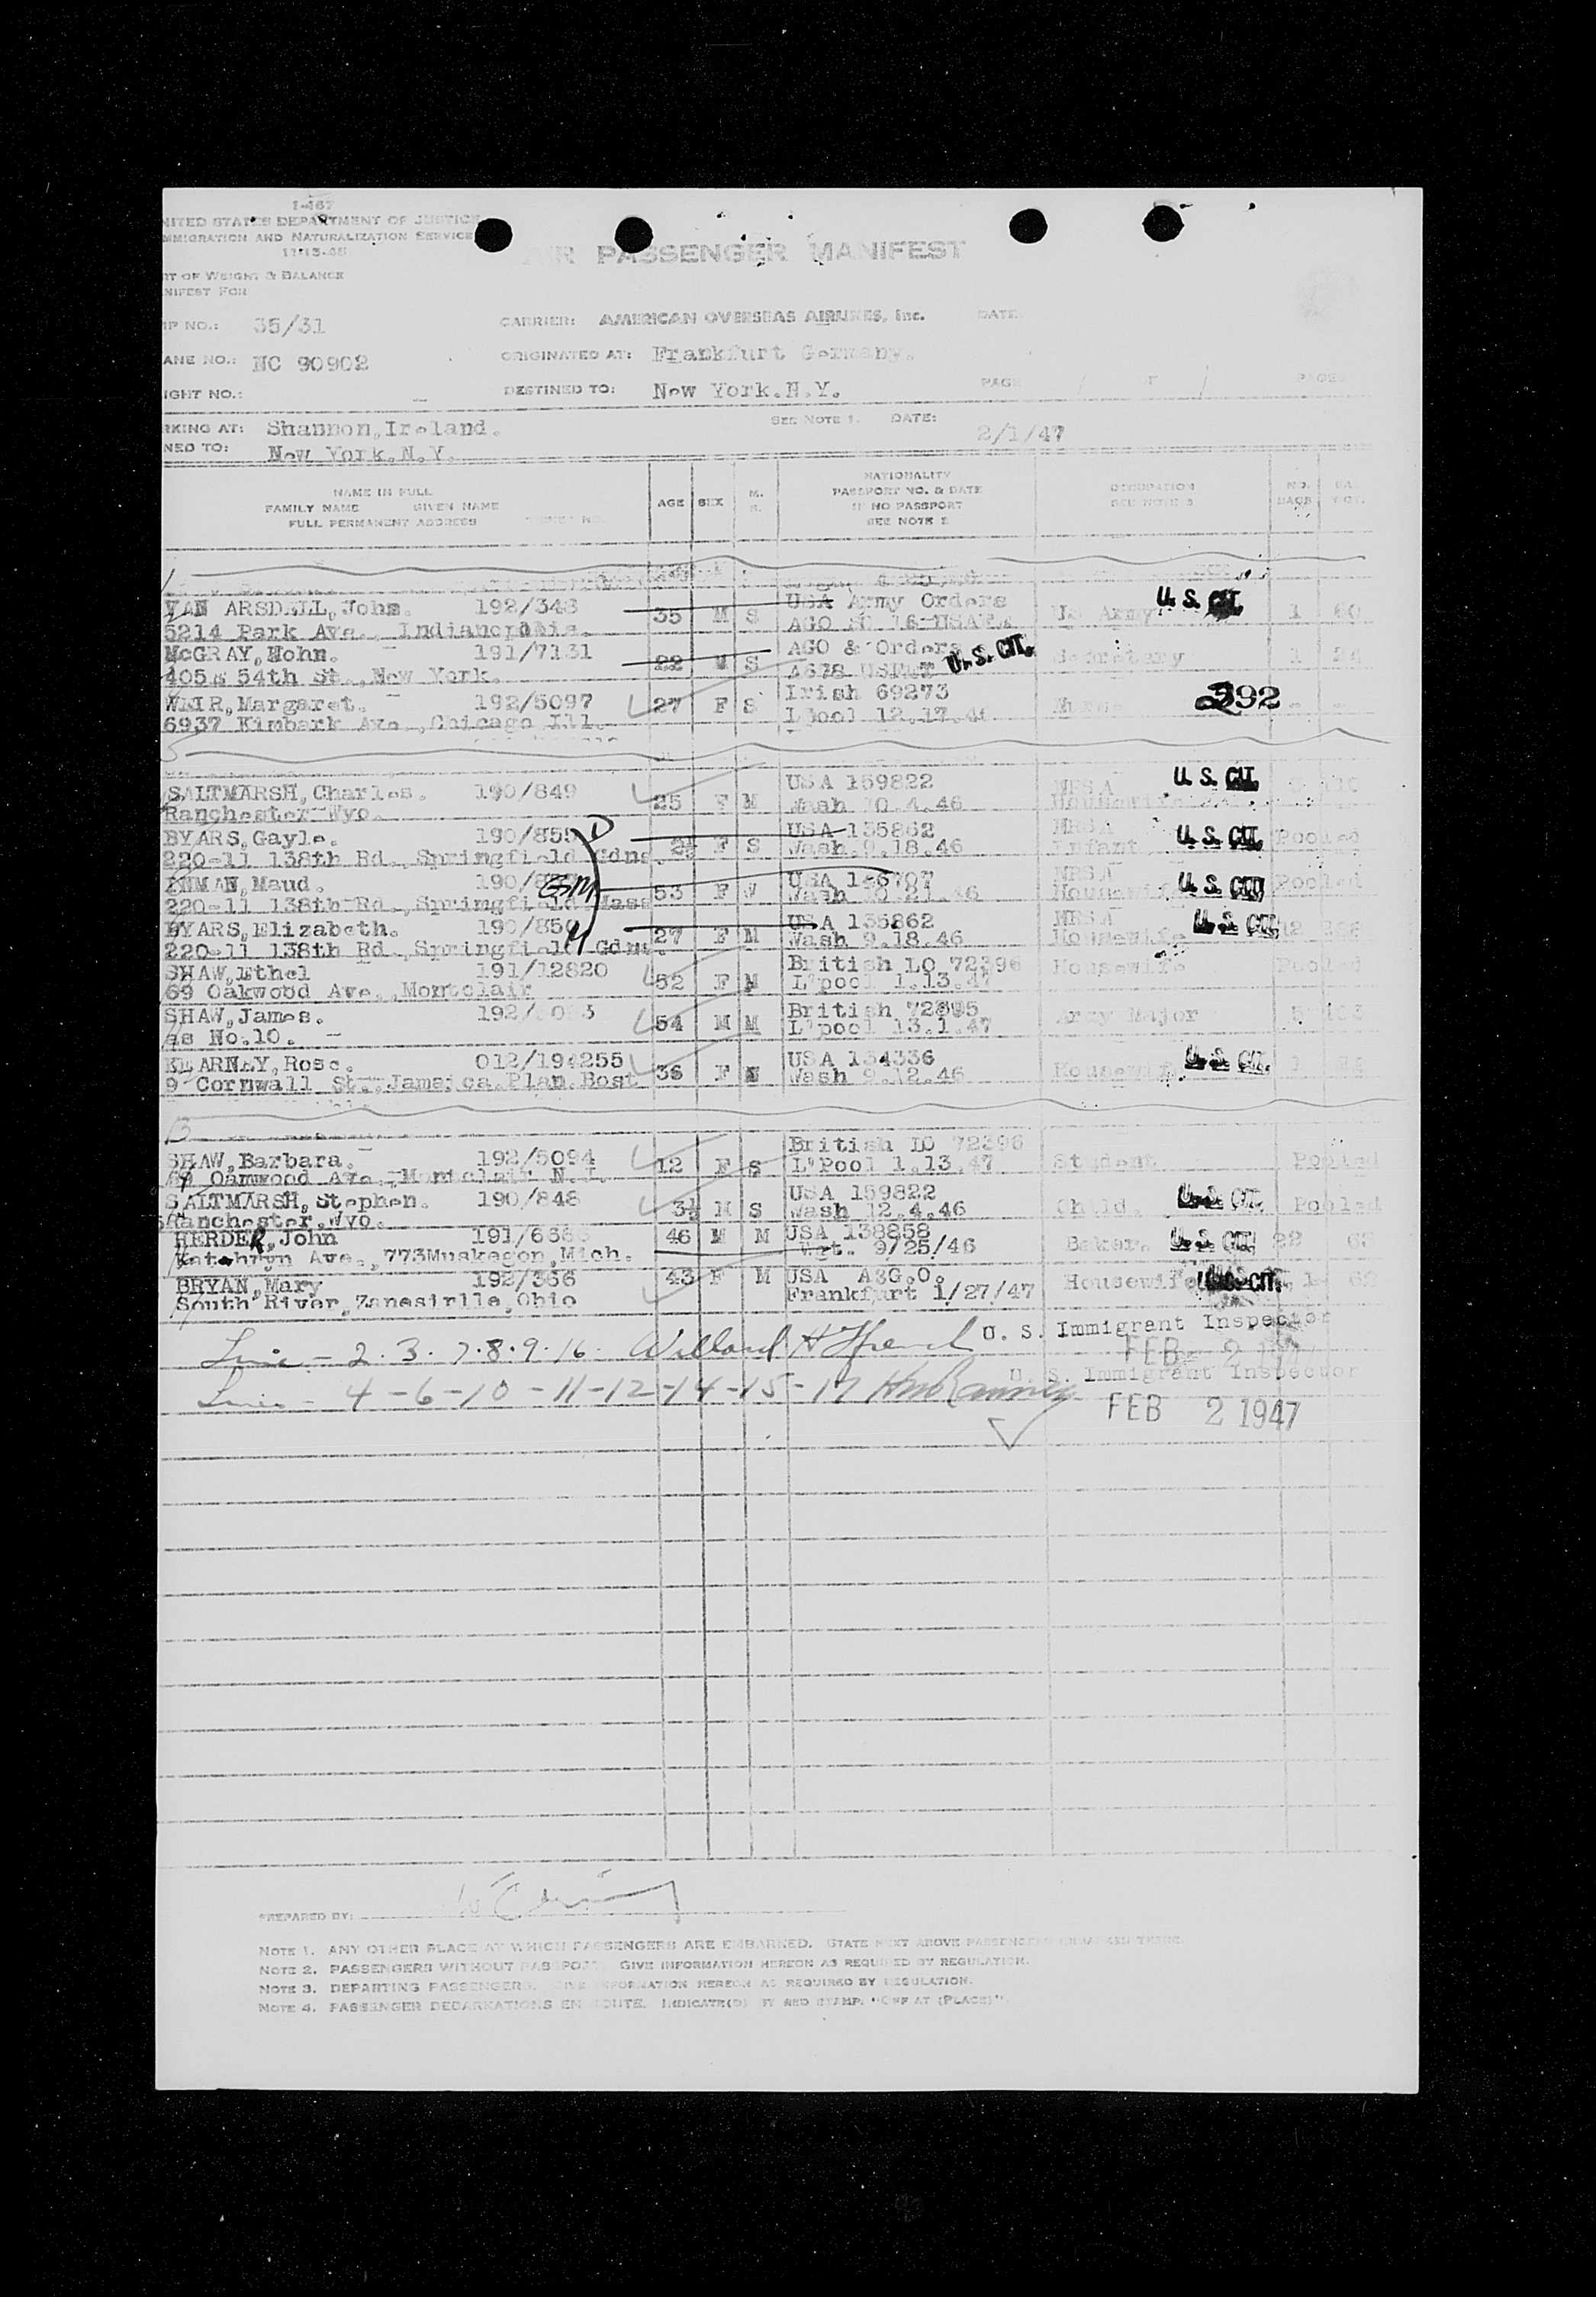 I-467
NITED STATES DEPARTMENT OF JUSTICE
MMIGRATION AND NATURALIZATION SERVICE
11-13-45
RT OF WEIGHT & BALANCE
NIFEST FOR
AIR PASSENGER MANIFEST
IP NO.: 35/31 CARRIER: AMERICAN OVERSEAS AIRLINES, Inc. DATE
ANE NO.: NC 90902 ORIGINATED AT: Frankfurt Germany.
IGHT NO.: DESTINED TO: New York.N.Y. PAGE / OF / PAGES
RKING AT: Shannon,Ireland. SEE NOTE 1. DATE: 2/1/47
NED TO: New York.N.Y.
NAME IN FULL
FAMILY NAME GIVEN NAME
FULL PERMANENT ADDRESS
AGE SEX M. S.
NATIONALITY
PASSPORT NO. & DATE
IF NO PASSPORT
SEE NOTE 2
OCCUPATION
SEE NOTE 3
NO. BAGS BA. WGT.
VAN ARSDELL,John. 192/348 35 M S USA Army Orders Us Army U.S. CIT. 1 60
5214 Park Ave., Indianopolis. AGO
McGRAY,Hohn. 191/7131 22 M S AGO & Orders U.S. CIT. Secretary 1 24
405 54th St.,New York.
WEIR,Margaret. 192/5097 27 F S Irish 69273 Nurse 392
6937 Kimbark Ave.,Chicago Ill. L'pool 12.17.46
5
SALTMARSH,Charles. 190/849 25 F M USA 159822 U.S. CIT.
Ranchester Wyo. Wash 10.4.46 Housewife
BYARS,Gayle. 190/855 2½ F S USA 135862 U.S. CIT. Pooled
220-11 138th Rd.,Springfield Gdns. Wash.9.18.46 Infant
INMAN,Maud. 53 F W USA 146707 U.S. CIT. Pooled
220-11 138th Rd.,Springfield Mass Wash 10.21.46 Housewife
BYARS,Elizabeth. 190/850 27 F M USA 135862 U.S. CIT.
220-11 138th Rd.,Springfield Gdns. Wash 9.18.46 Housewife
SHAW,Ethel 191/12820 52 F M British LO 72396 Housewife Pooled
69 Oakwood Ave.,Montclair L'pool 1.13.47
SHAW,James. 54 M M British 72395 Army Major 5 103
as No.10. L'pool 13.1.47
KEARNEY,Rose. 012/194255 36 F USA 134336 Housewife U.S. CIT. 1
9 Cornwall St.,Jamaica.Plan.Bost Wash 9.12.46
13
SHAW,Barbara. 192/5094 12 F S British LO 72396 Student Pooled
69 Oamwood Ave.,Montclair N.J. L'Pool 1.13.47
SALTMARSH,Stephen. 190/848 3½ M S USA 159822 Child. U.S. CIT. Pooled
Ranchester.Wyo. Wash 12.4.46
HERDER,John 46 M M USA 138858 Baker. U.S. CIT.
Katahryn Ave.,773Muskegon,Mich. 9/25/46
BRYAN,Mary 192/366 43 F M USA A3G.O. Housewife U.S. CIT. 1
South River,Zanesirlle,Ohio Frankfurt 1/27/47
Line - 2.3.7.8.9.16. Willard H French U. S. Immigrant Inspector
FEB 2
U. S. Immigrant Inspector
Lines - 4-6-10-11-12-14-15-17
FEB 2 1947
PREPARED BY:
NOTE 1. ANY OTHER PLACE AT WHICH PASSENGERS ARE EMBARKED. STATE NEXT ABOVE PASSENGERS EMBARKED THERE.
NOTE 2. PASSENGERS WITHOUT PASSPORT. GIVE INFORMATION HEREON AS REQUIRED BY REGULATION.
NOTE 3. DEPARTING PASSENGERS. GIVE INFORMATION HEREON AS REQUIRED BY REGULATION.
NOTE 4. PASSENGER DEBARKATIONS EN ROUTE. INDICATE(D) BY RED STAMP. "OFF AT (PLACE)".